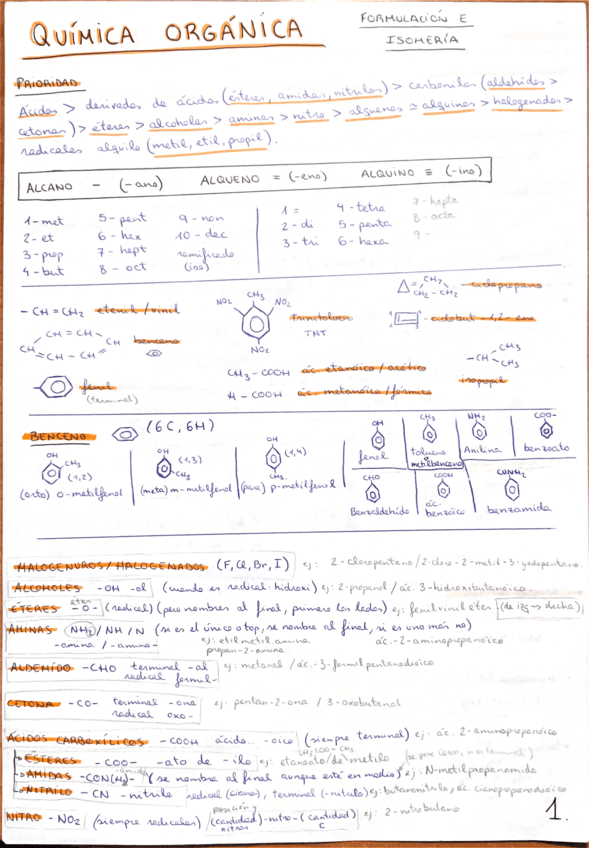 QUÍMICA ORGÁNICA
FORMULACIÓN E
ISOMERÍA
PRIORIDAD
Ácidos > derivados de ácidos (ésteres, amidas, nitrilos) > carbonilos (aldehídos >
cetonas) > éteres > alcoholes > aminas > nitro > alquenos ≃ alquinos > halogenados >
radicales alquilo (metil, etil, propil).
ALCANO - (-ano) ALQUENO = (-eno) ALQUINO ≡ (-ino)
1-met 5-pent 9-non
2-et 6-hex 10-dec
3-prop 7-hept ramificado
4-but 8-oct (iso)
1= 4-tetra 7-hepta
2-di 5-penta 8-octa
3-tri 6-hexa 9-
-CH=CH₂ etenil/vinil
CH=CH-CH benceno
CH=CH-CH
fenil
(terminal)
CH₃
NO₂ NO₂
NO₂
Trinitotolueno
TNT
CH₃-COOH ác. etanóico/acético
H-COOH ác. metanóico/fórmico
CH₂
CH₂-CH₂ -ciclopropano
-ciclobut-1,2-eno
-CH CH₃
CH₃
isopropil
BENCENO (6C, 6H)
OH CH₃ (1,2)
(orto) o-metilfenol
OH (1,3) CH₃
(meta) m-metilfenol
OH (1,4) CH₃
(para) p-metilfenol
OH
fenol
CH₃
tolueno
metilbenceno
NH₂
Anilina
COO-
benzoato
CHO
Benzaldehído
COOH
ác. benzoico
CONH₂
benzamida
HALOGENUROS/HALOGENADOS (F, Cl, Br, I) ej: 2-cloropentano/2-cloro-2-metil-3-yodopentano.
ALCOHOLES -OH -ol (cuando es radical: hidroxi) ej: 2-propanol / ác. 3-hidroxibutanoico.
ÉTERES éter -O- (radical) (pero nombres al final, primero los lados) ej: fenilvinil éter (de izq → dcha)
AMINAS NH₂/NH/N (si es el único o top, se nombra al final, si es uno más no)
-amina / -amino- ej: etilmetilamina ác.-2-aminopropanoico
propan-2-amina
ALDEHÍDO -CHO terminal -al ej: metanal / ác.-3-formilpentanodioico
radical formil-
CETONA -CO- terminal -ona ej: pentan-2-ona / 3-oxobutanal
radical oxo-
ÁCIDOS CARBOXÍLICOS -COOH ácido... -oico (siempre terminal) ej: ác. 2-aminopropanoico
CH₃COO-CH₃
ÉSTERES -COO- -ato de -ilo ej: etanoato de metilo
AMIDAS -CON(H₂)- -amida (se nombra al final aunque esté en medio) ej: N-metilpropanamida
NITRILO -CN -nitrilo radical (ciano), terminal (-nitrilo) ej: butanonitrilo, ác. cianopropanodioico
NITRO -NO₂ (siempre radicales) posición y (cantidad)-nitro-(cantidad) ej: 2-nitrobutano
nitros C
1.